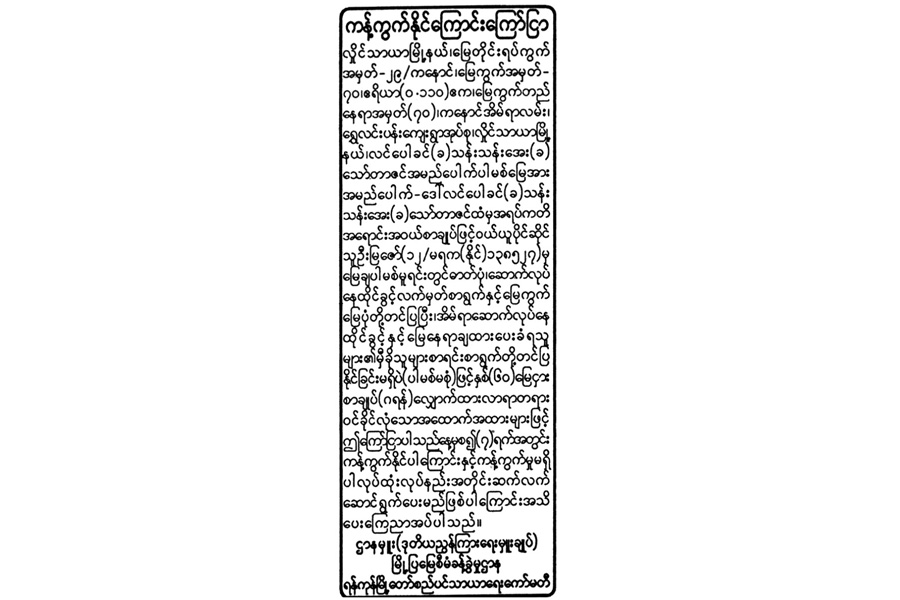 ကန့်ကွက်နိုင်ကြောင်းကြော်ငြာ
လှိုင်သာယာမြို့နယ်၊မြေတိုင်းရပ်ကွက်
အမှတ်-၂၉/ကနောင်၊မြေကွက်အမှတ်-
၇၀၊ဧရိယာ(၀.၁၁၀)ဧက၊မြေကွက်တည်
နေရာအမှတ်(၇၀)၊ကနောင်အိမ်ရာလမ်း၊
ရွှေလင်းပန်းကျေးရွာအုပ်စု၊လှိုင်သာယာမြို့
နယ်၊လင်ပေါခင်(ခ)သန်းသန်းအေး(ခ)
သော်တာဇင်အမည်ပေါက်ပါမစ်မြေအား
အမည်ပေါက်-ဒေါ်လင်ပေါခင်(ခ)သန်း
သန်းအေး(ခ)သော်တာဇင်ထံမှအရပ်ကတိ
အရောင်းအဝယ်စာချုပ်ဖြင့်ဝယ်ယူပိုင်ဆိုင်
သူဦးမြဇော်(၁၂/မရက(နိုင်)၁၃၈၅၂၇)မှ
မြေချပါမစ်မူရင်းတွင်ဓာတ်ပုံ၊ဆောက်လုပ်
နေထိုင်ခွင့်လက်မှတ်စာရွက်နှင့်မြေကွက်
မြေပုံတို့တင်ပြပြီး၊အိမ်ရာဆောက်လုပ်နေ
ထိုင်ခွင့်နှင့်မြေနေရာချထားပေးခံရသူ
များ၏မှီခိုသူများစာရင်းစာရွက်တို့တင်ပြ
နိုင်ခြင်းမရှိပဲ(ပါမစ်မစုံ)ဖြင့်နှစ်(၆၀)မြေငှား
စာချုပ်(ဂရန်)လျှောက်ထားလာရာတရား
ဝင်ခိုင်လုံသောအထောက်အထားများဖြင့်
ဤကြော်ငြာပါသည့်နေ့မှစ၍(၇)ရက်အတွင်း
ကန့်ကွက်နိုင်ပါကြောင်းနှင့်ကန့်ကွက်မှုမရှိ
ပါလုပ်ထုံးလုပ်နည်းအတိုင်းဆက်လက်
ဆောင်ရွက်ပေးမည်ဖြစ်ပါကြောင်းအသိ
ပေးကြေညာအပ်ပါသည်။
ဌာနမှူး(ဒုတိယညွှန်ကြားရေးမှူးချုပ်)
မြို့ပြမြေစီမံခန့်ခွဲမှုဌာန
ရန်ကုန်မြို့တော်စည်ပင်သာယာရေးကော်မတီ